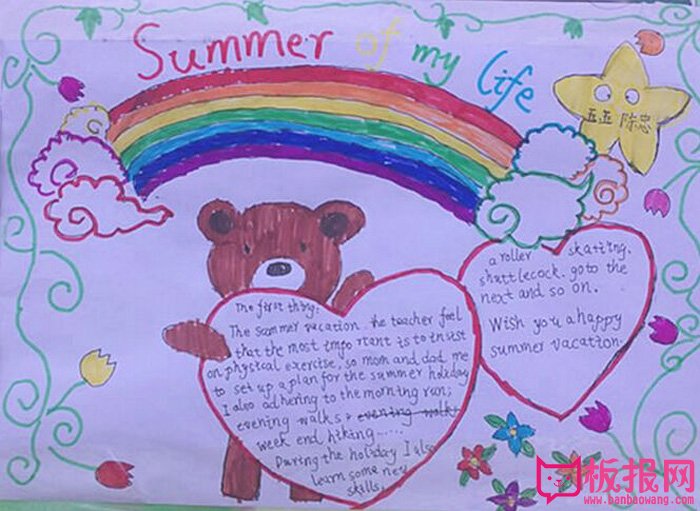 Summer of my life
五五 陈忠
The first thing:
The summer vacation. the teacher feel
that the most important is to insist
on physical exercise, so mom and dad me
to set up a plan for the summer holiday
I also adhering to the morning run;
evening walks & evening walks
week end hiking......
During the holiday I also
learn some new
skills,
a roller skating.
shuttlecock. go to the
next and so on.
Wish you a happy
summer vacation.
板报网
www.banbaowang.com